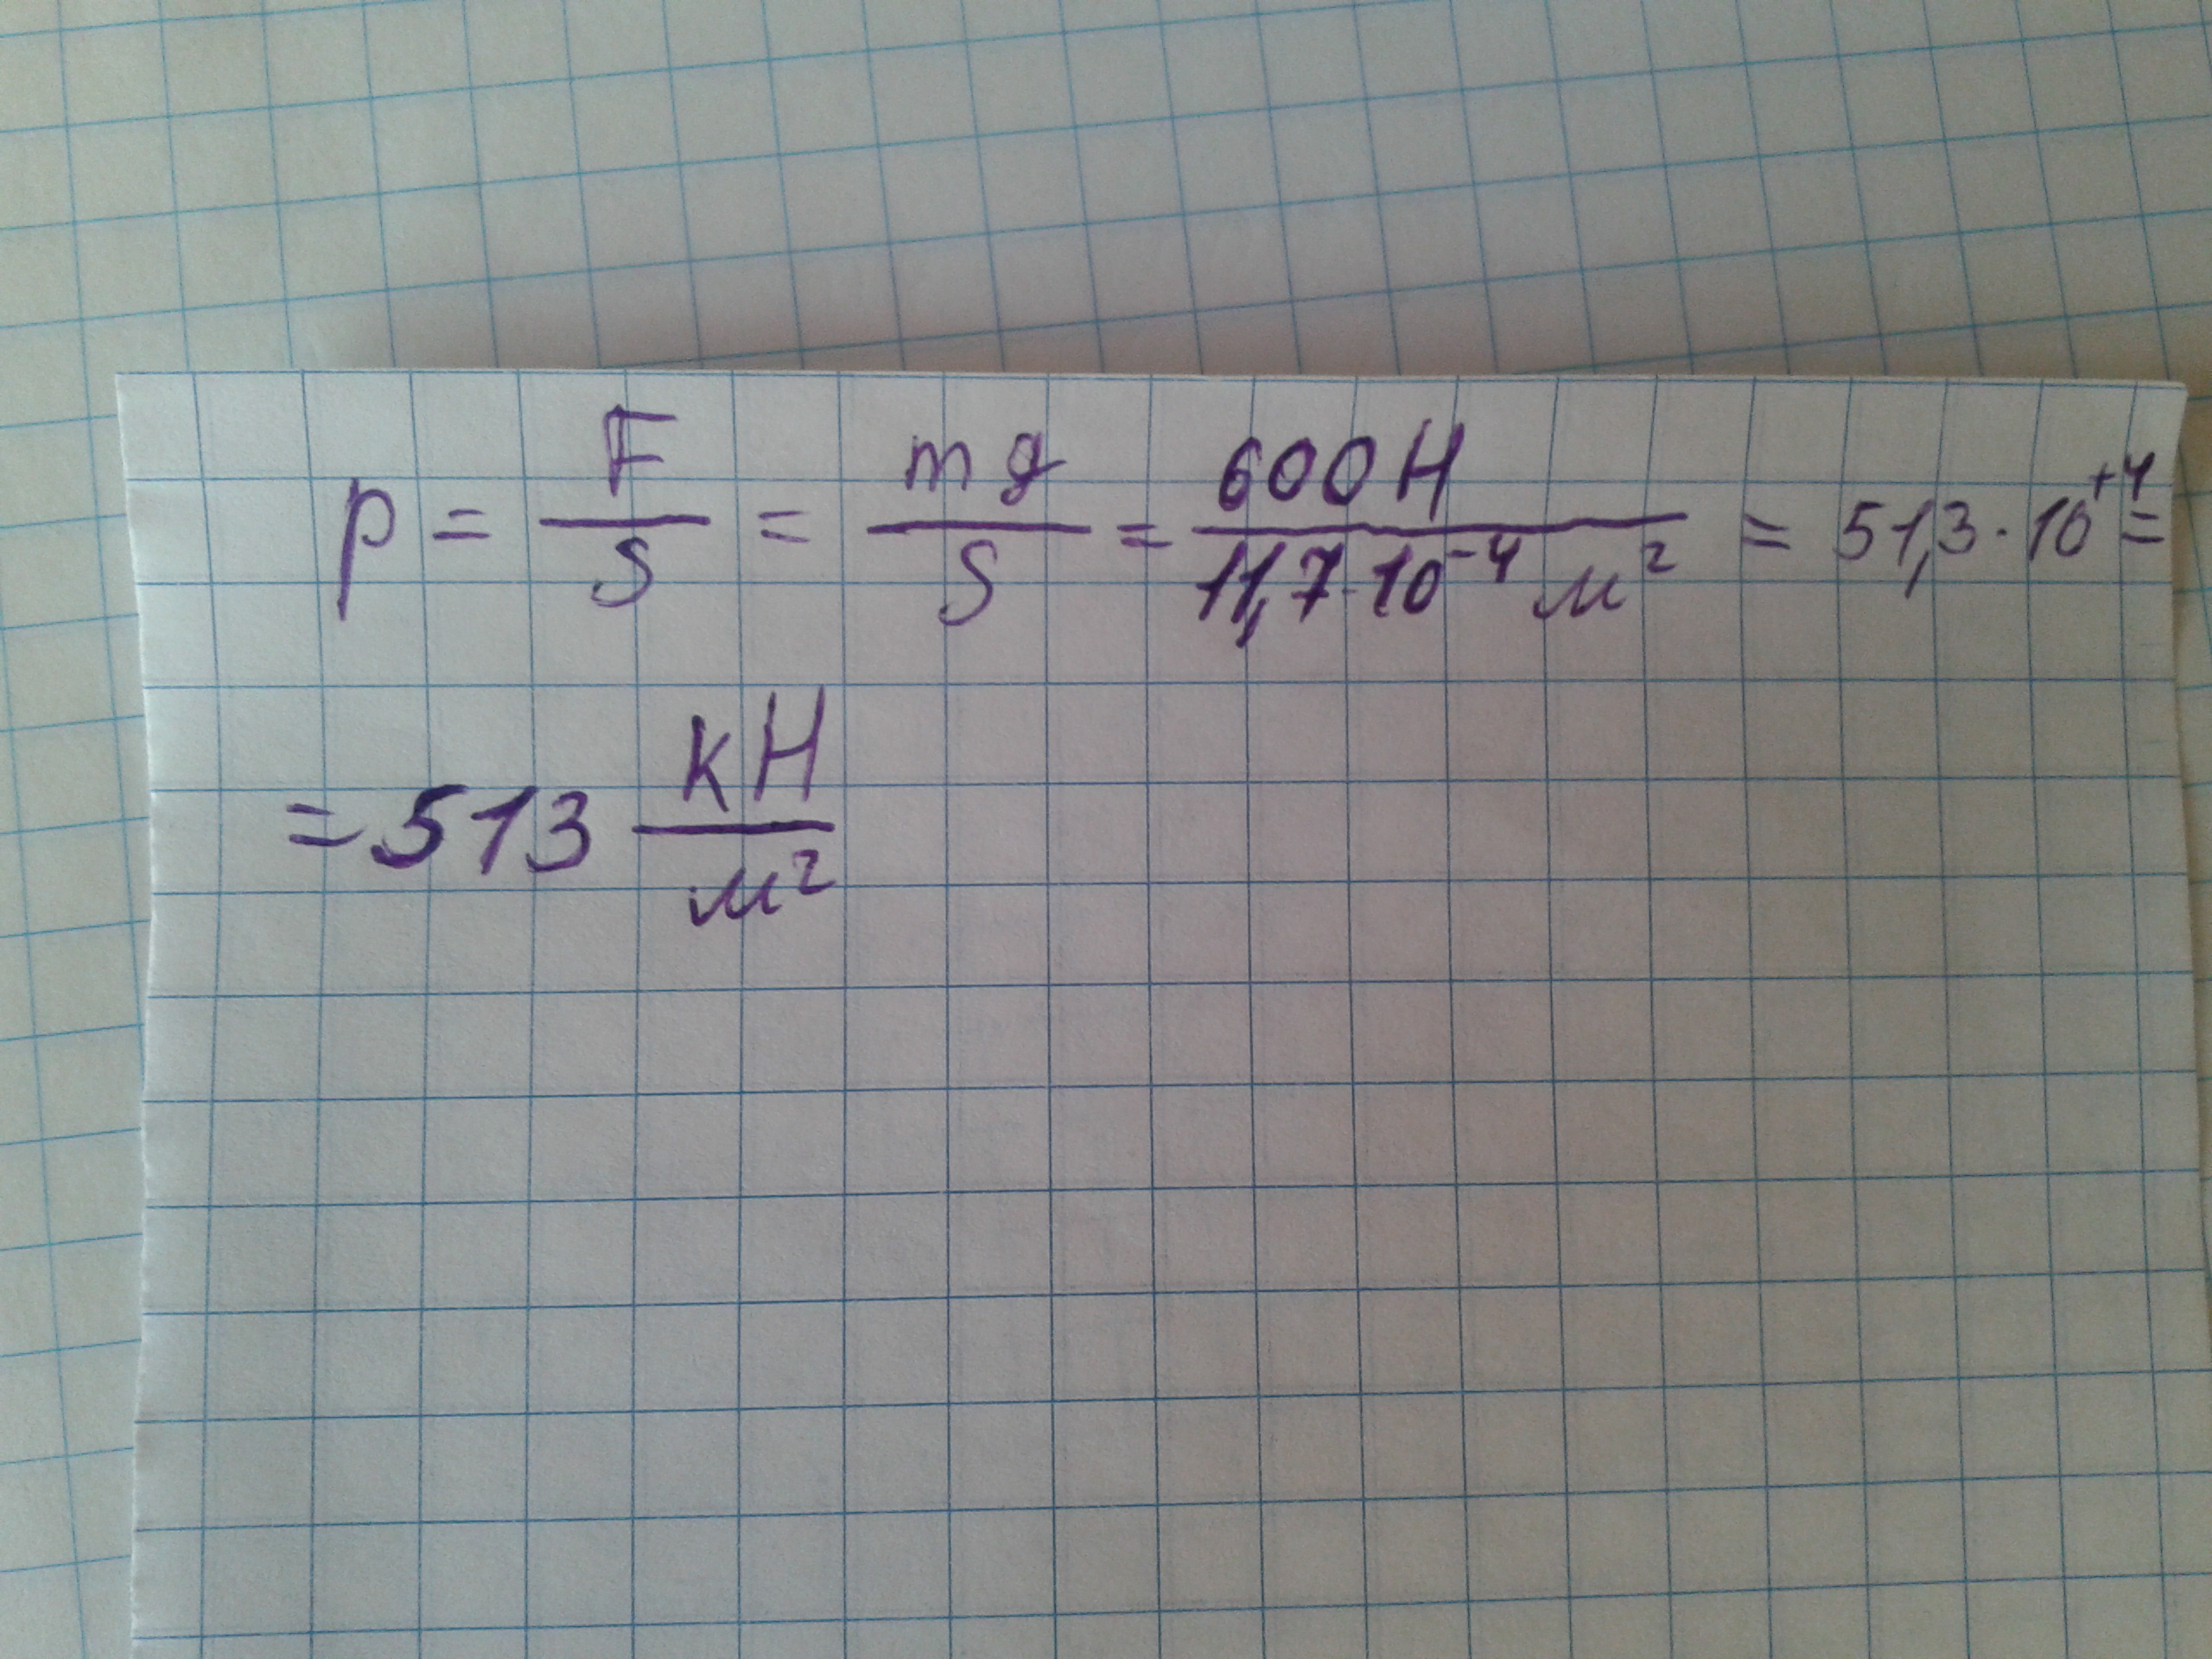 p = F/S = mg/S = 600 Н / 11,7·10⁻⁴ м² = 51,3·10⁺⁴ =
= 513 кН/м²